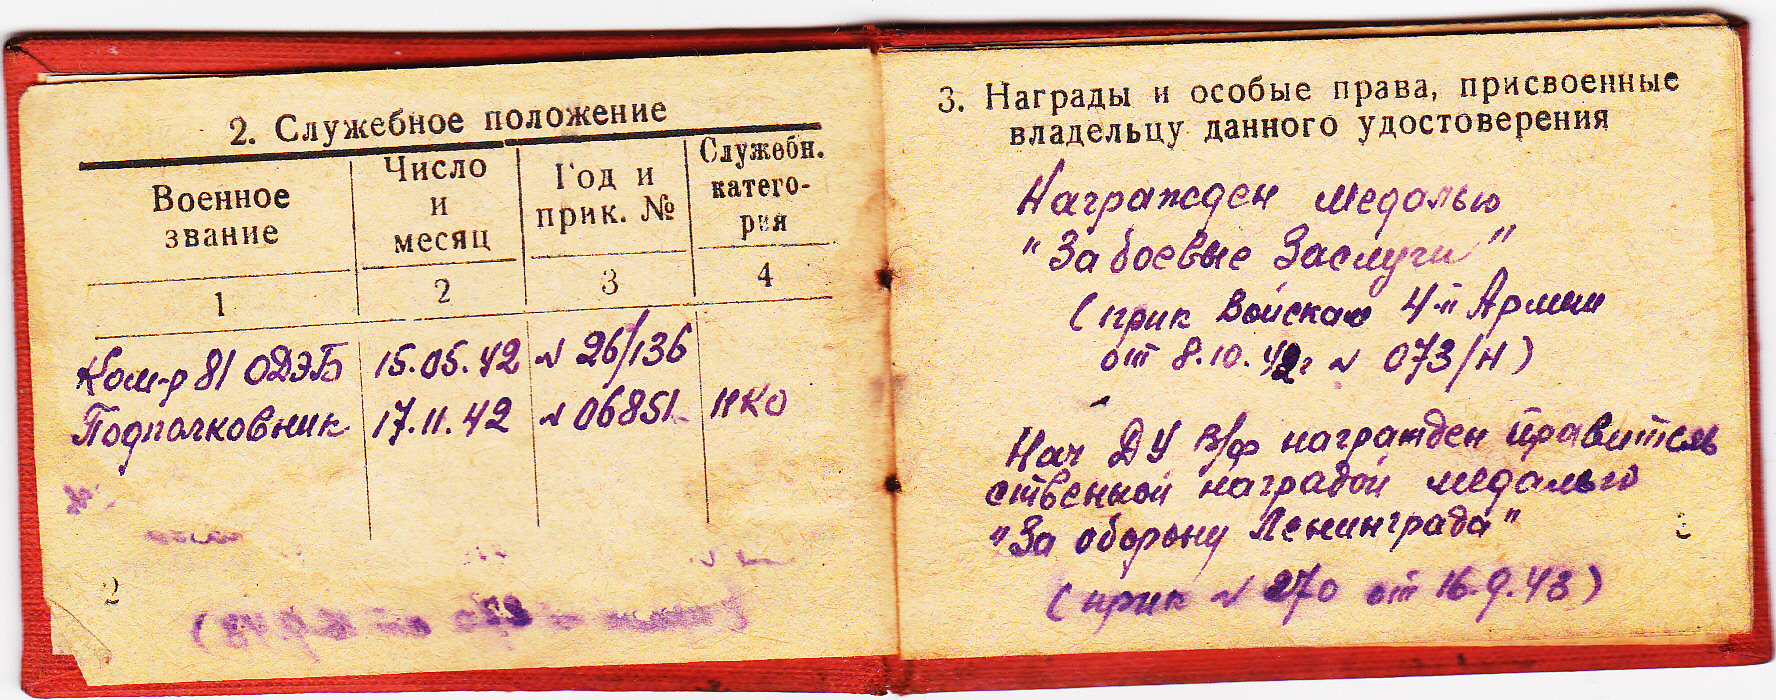 2. Служебное положение
Военное звание
Число и месяц
Год и прик. №
Служебн. катего- рия
1 2 3 4
Ком-р 81 ОДЭБ 15.05.42 № 26/136
Подполковник 17.11.42 № 06851 НКО
2
3. Награды и особые права, присвоенные
владельцу данного удостоверения
Награжден медалью
"За боевые Заслуги"
(прик Войскам 4-й Армии
от 8.10.42г № 073/н)
Нач ДУ В/ф награжден правитель
ственной наградой медалью
"За оборону Ленинграда"
3
(прик № 270 от 16.9.43)